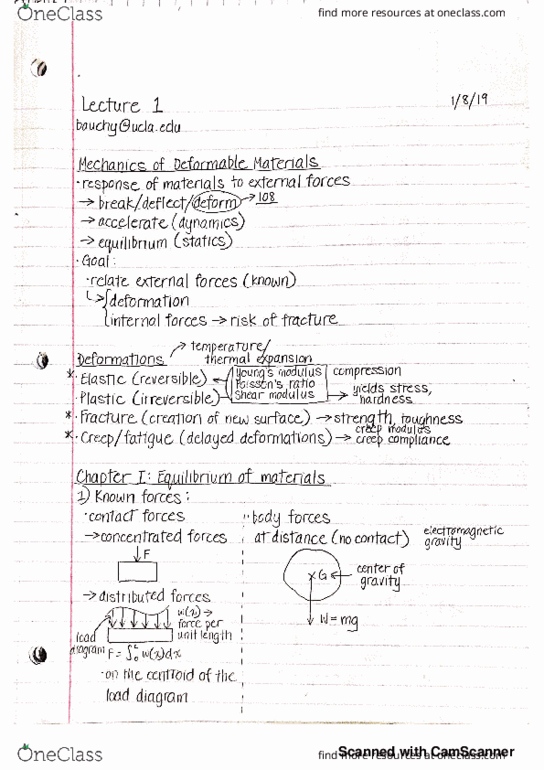 OneClass
find more resources at oneclass.com
Lecture 1
1/8/19
bauchy@ucla.edu
Mechanics of Deformable Materials
· response of materials to external forces
→ break/deflect/deform → 108
→ accelerate (dynamics)
→ equilibrium (statics)
· Goal:
· relate external forces (known)
↳ deformation
internal forces → risk of fracture
Deformations → temperature/
thermal expansion
* Elastic (reversible) ← Young's modulus compression
Poisson's ratio
Plastic (irreversible) Shear modulus → yields stress,
hardness
* Fracture (creation of new surface) → strength, toughness
* Creep/fatigue (delayed deformations) → creep modules
creep compliance
Chapter I: Equilibrium of materials
1) Known forces:
· contact forces
→ concentrated forces
F
→ distributed forces
w(x) →
force per
unit length
load
diagram
F = ∫₀ᴸ w(x)dx
· on the centroid of the
load diagram
· body forces
at distance (no contact)
electromagnetic
gravity
xG ← center of
gravity
W = mg
OneClass
find more resources at oneclass.com
Scanned with CamScanner